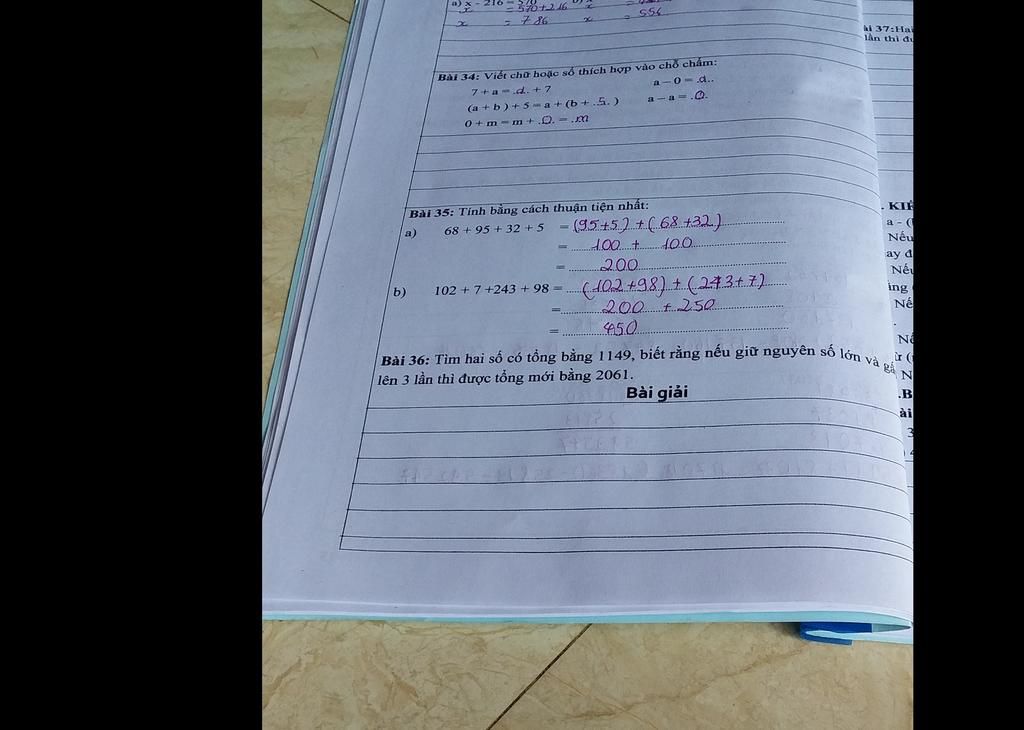 a) x - 216 = 570
x = 570+216 x
x = 786 x = 556
Bài 34: Viết chữ hoặc số thích hợp vào chỗ chấm:
7 + a = .a. + 7 a – 0 = .a..
(a + b ) + 5 = a + (b + .5. ) a – a = .0.
0 + m = m + .0. = .m
Bài 35: Tính bằng cách thuận tiện nhất:
a) 68 + 95 + 32 + 5 = (95+5) + ( 68 +32)
= 100 + 100
= 200
b) 102 + 7 +243 + 98 = (102 +98) + (243+7)
= 200 + 250
= 450
Bài 36: Tìm hai số có tổng bằng 1149, biết rằng nếu giữ nguyên số lớn và gấ
lên 3 lần thì được tổng mới bằng 2061.
Bài giải
ài 37:Hai
lần thì đư
. KIẾ
a - (
Nếu
ay đ
Nếu
ing
Nế
Nế
ừ (
N
.B
ài
3